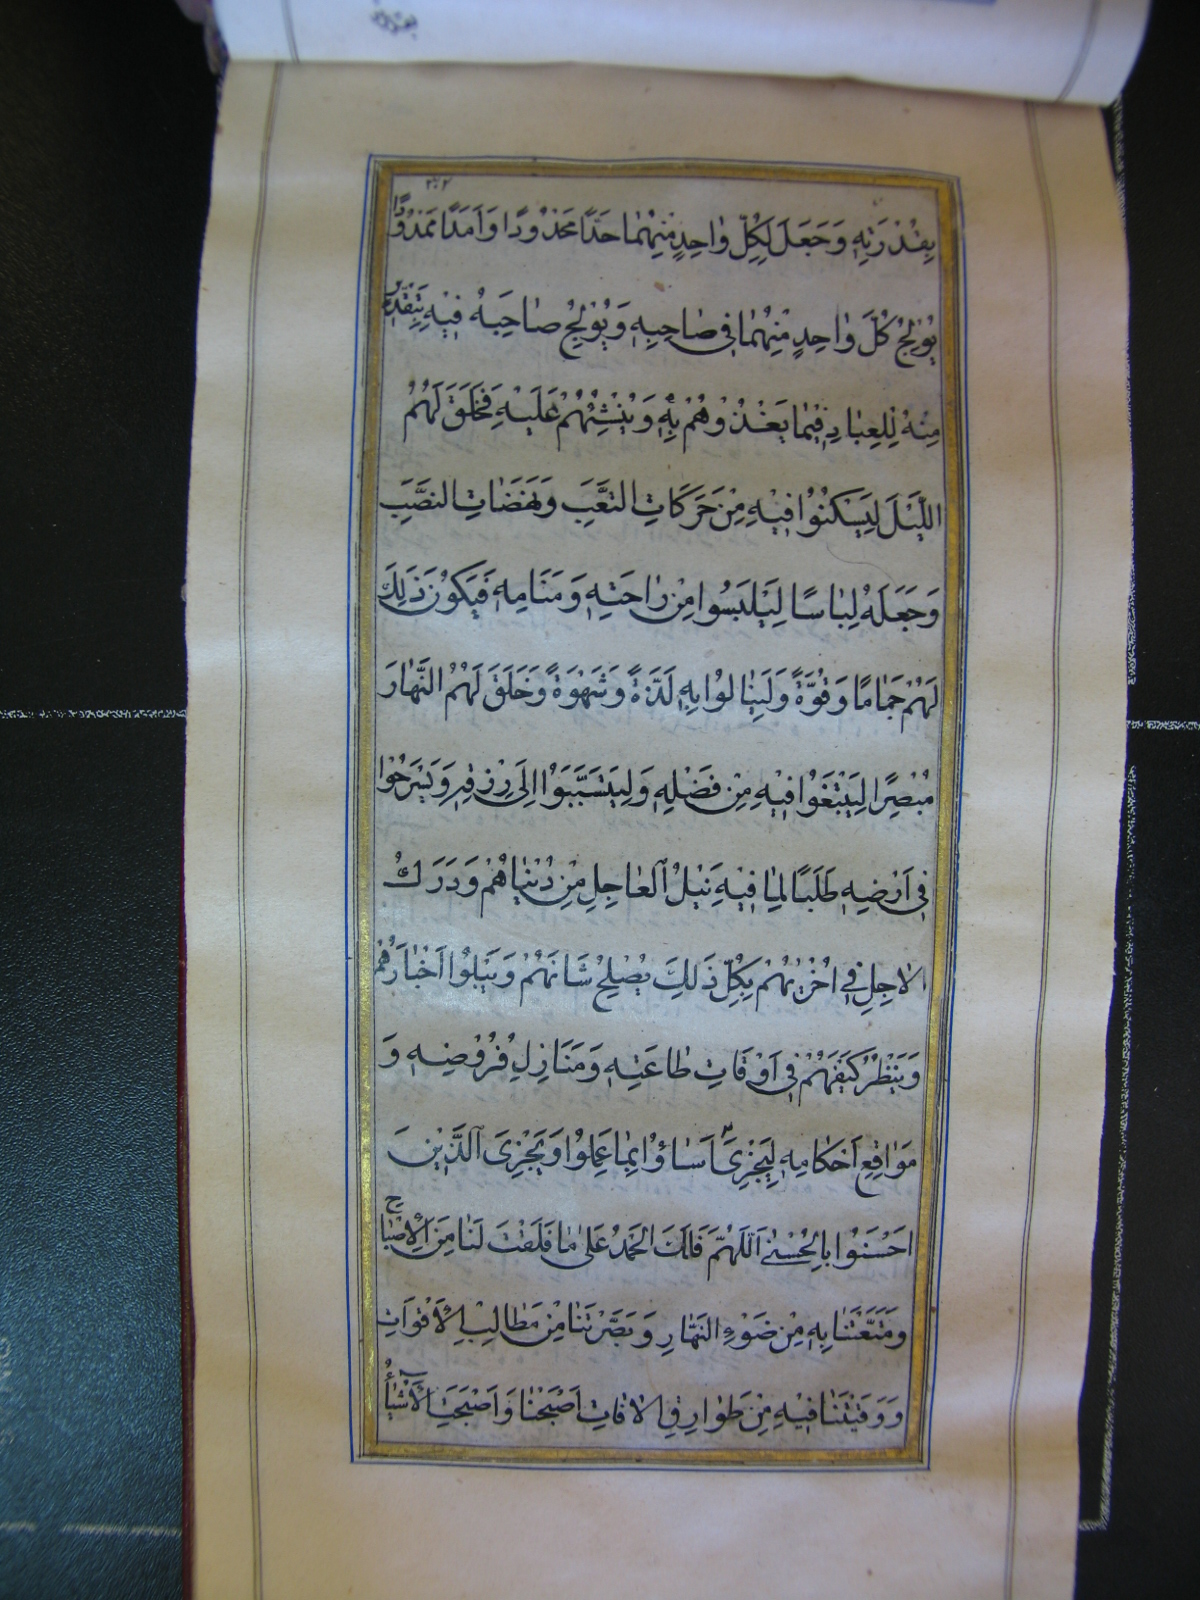 بِقُدْرَتِهِ وَجَعَلَ لِكُلِّ وٰاحِدٍ مِنْهُمٰا حَدًّا مَحْدُودًا وَاَمَدًا مَمْدُودًا
يُولِجُ كُلَّ وٰاحِدٍ مِنْهُمٰا فى صٰاحِبِهِ وَيُولِجُ صٰاحِبَهُ فيهِ بِتَقْديرٍ
مِنْهُ لِلْعِبٰادِ فيمٰا يَغْذُوهُمْ بِهِ وَيُنْشِئُهُمْ عَلَيْهِ فَخَلَقَ لَهُمُ
اللَّيْلَ لِيَسْكُنُوا فيهِ مِنْ حَرَكَاتِ التَّعَبِ وَنَهَضَاتِ النَّصَبِ
وَجَعَلَهُ لِبٰاسًا لِيَلْبَسُوا مِنْ رٰاحَتِهِ وَمَنَامِهِ فَيَكُونَ ذَلِكَ
لَهُمْ جَمَامًا وَقُوَّةً وَلِيَنٰالُوا بِهِ لَذَّةً وَشَهْوَةً وَخَلَقَ لَهُمُ النَّهٰارَ
مُبْصِرًا لِيَبْتَغُوا فيهِ مِنْ فَضْلِهِ وَلِيَتَسَبَّبُوا اِلَى رِزْقِهِ وَيَسْرَحُوا
فى اَرْضِهِ طَلَبًا لِمٰا فيهِ نَيْلُ الْعٰاجِلِ مِنْ دُنْيٰاهُمْ وَدَرَكُ
الْاٰجِلِ فى اُخْرٰيهُمْ بِكُلِّ ذَلِكَ يُصْلِحُ شَانَهُمْ وَيَبْلُوا اَخْبٰارَهُمْ
وَيَنْظُرُ كَيْفَ هُمْ فى اَوْقَاتِ طٰاعَتِهِ وَمَنَازِلِ فُرُوضِهِ وَ
مَوٰاقِعِ اَحْكَامِهِ لِيَجْزِىَ اَسٰاؤُا بِمٰا عَمِلُوا وَيَجْزِىَ الَّذينَ
اَحْسَنُوا بِالْحُسْنىٰ اَللّٰهُمَّ فَلَكَ الْحَمْدُ عَلىٰ مٰا فَلَقْتَ لَنٰا مِنَ الْاِصْبٰاحِ
وَمَتَّعْتَنٰا بِهِ مِنْ ضَوْءِ النَّهٰارِ وَبَصَّرْتَنٰا مِنْ مَطٰالِبِ الْاَقْوَاتِ
وَوَقَيْتَنٰا فيهِ مِنْ طَوٰارِقِ الْاٰفٰاتِ اَصْبَحْنٰا وَاَصْبَحَتِ الْاَشْيٰاءُ